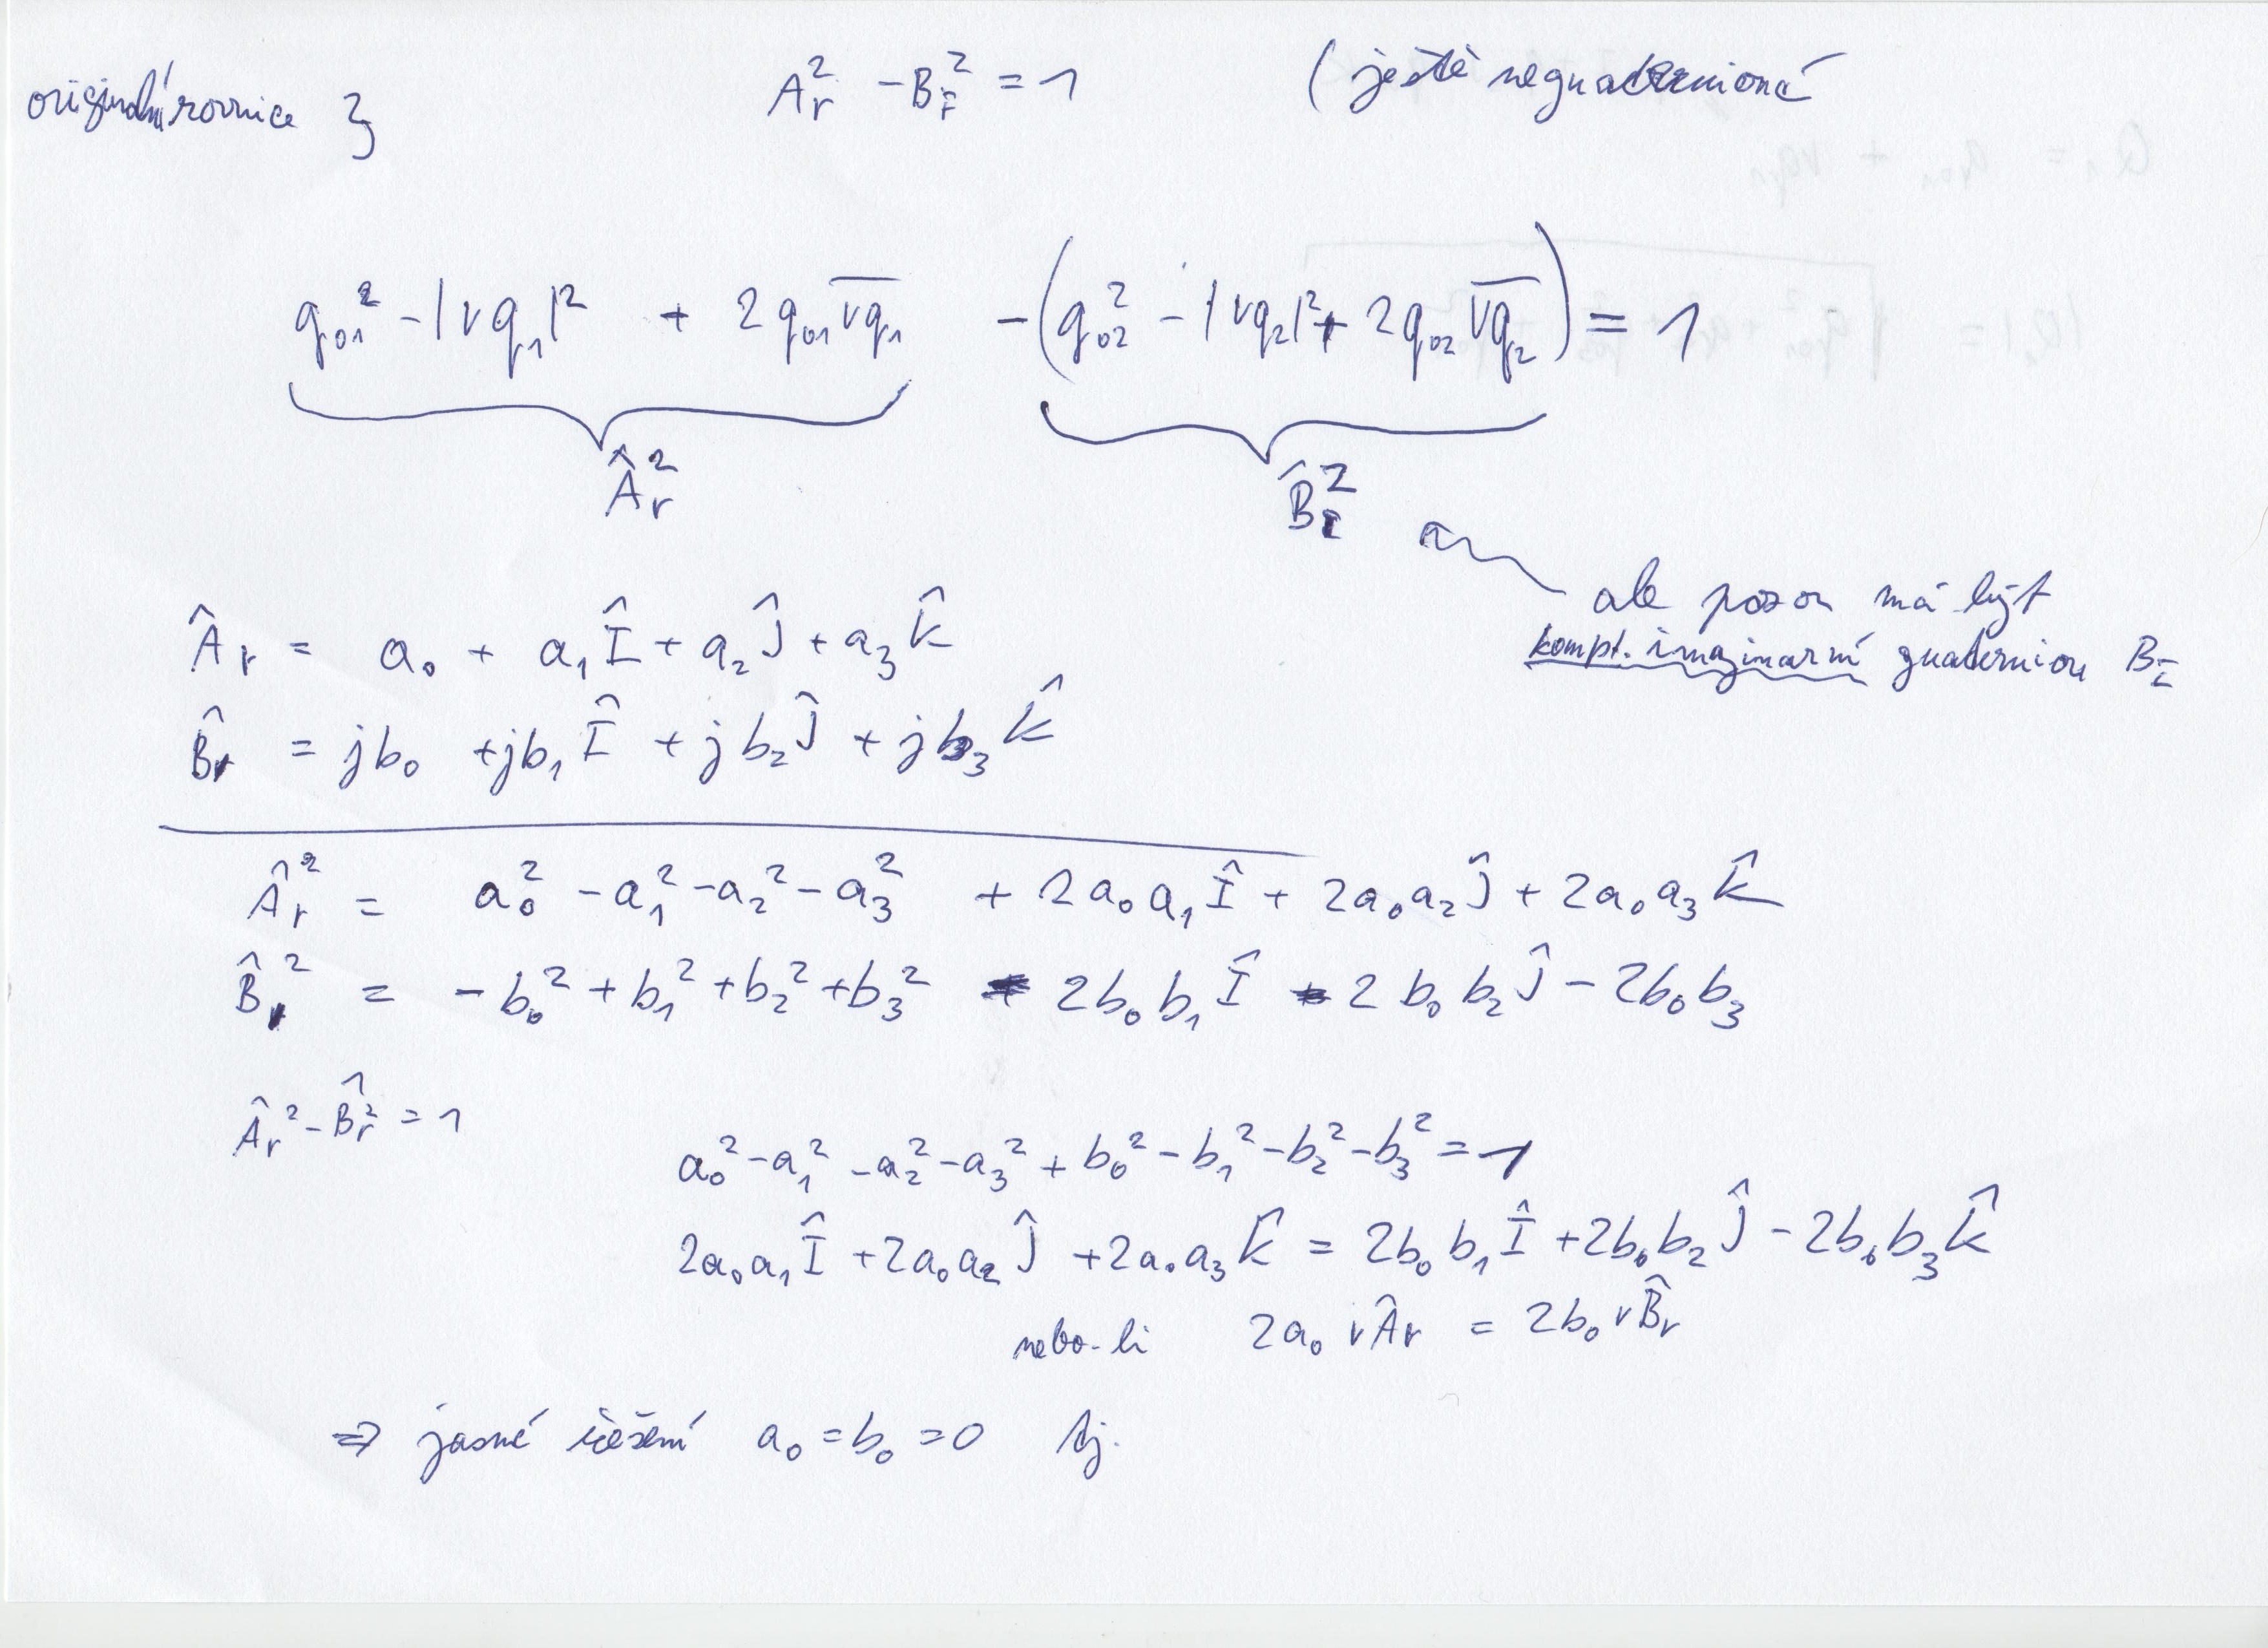 originální rovnice } A_r^2 - B_r^2 = 1 ( ještě neguaternioné
q_01^2 - |vq_1|^2 + 2q_01 \overline{vq_1} - (q_02^2 - |vq_2|^2 + 2q_02 \overline{vq_2}) = 1
Â_r^2 B̂_I^2
ale pozor má být
kompl. imaginarní guaternion B_I
Â_r = a_0 + a_1 Î + a_2 Ĵ + a_3 K̂
B̂_r = jb_0 + jb_1 Î + jb_2 Ĵ + jb_3 K̂
Â_r^2 = a_0^2 - a_1^2 - a_2^2 - a_3^2 + 2a_0a_1 Î + 2a_0a_2 Ĵ + 2a_0a_3 K̂
B̂_r^2 = -b_0^2 + b_1^2 + b_2^2 + b_3^2 - 2b_0b_1 Î - 2b_0b_2 Ĵ - 2b_0b_3
Â_r^2 - B̂_r^2 = 1
a_0^2 - a_1^2 - a_2^2 - a_3^2 + b_0^2 - b_1^2 - b_2^2 - b_3^2 = 1
2a_0a_1 Î + 2a_0a_2 Ĵ + 2a_0a_3 K̂ = 2b_0b_1 Î + 2b_0b_2 Ĵ - 2b_0b_3 K̂
nebo-li 2a_0 vÂ_r = 2b_0 vB̂_r
⇒ jasné řešení a_0 = b_0 = 0 tj.